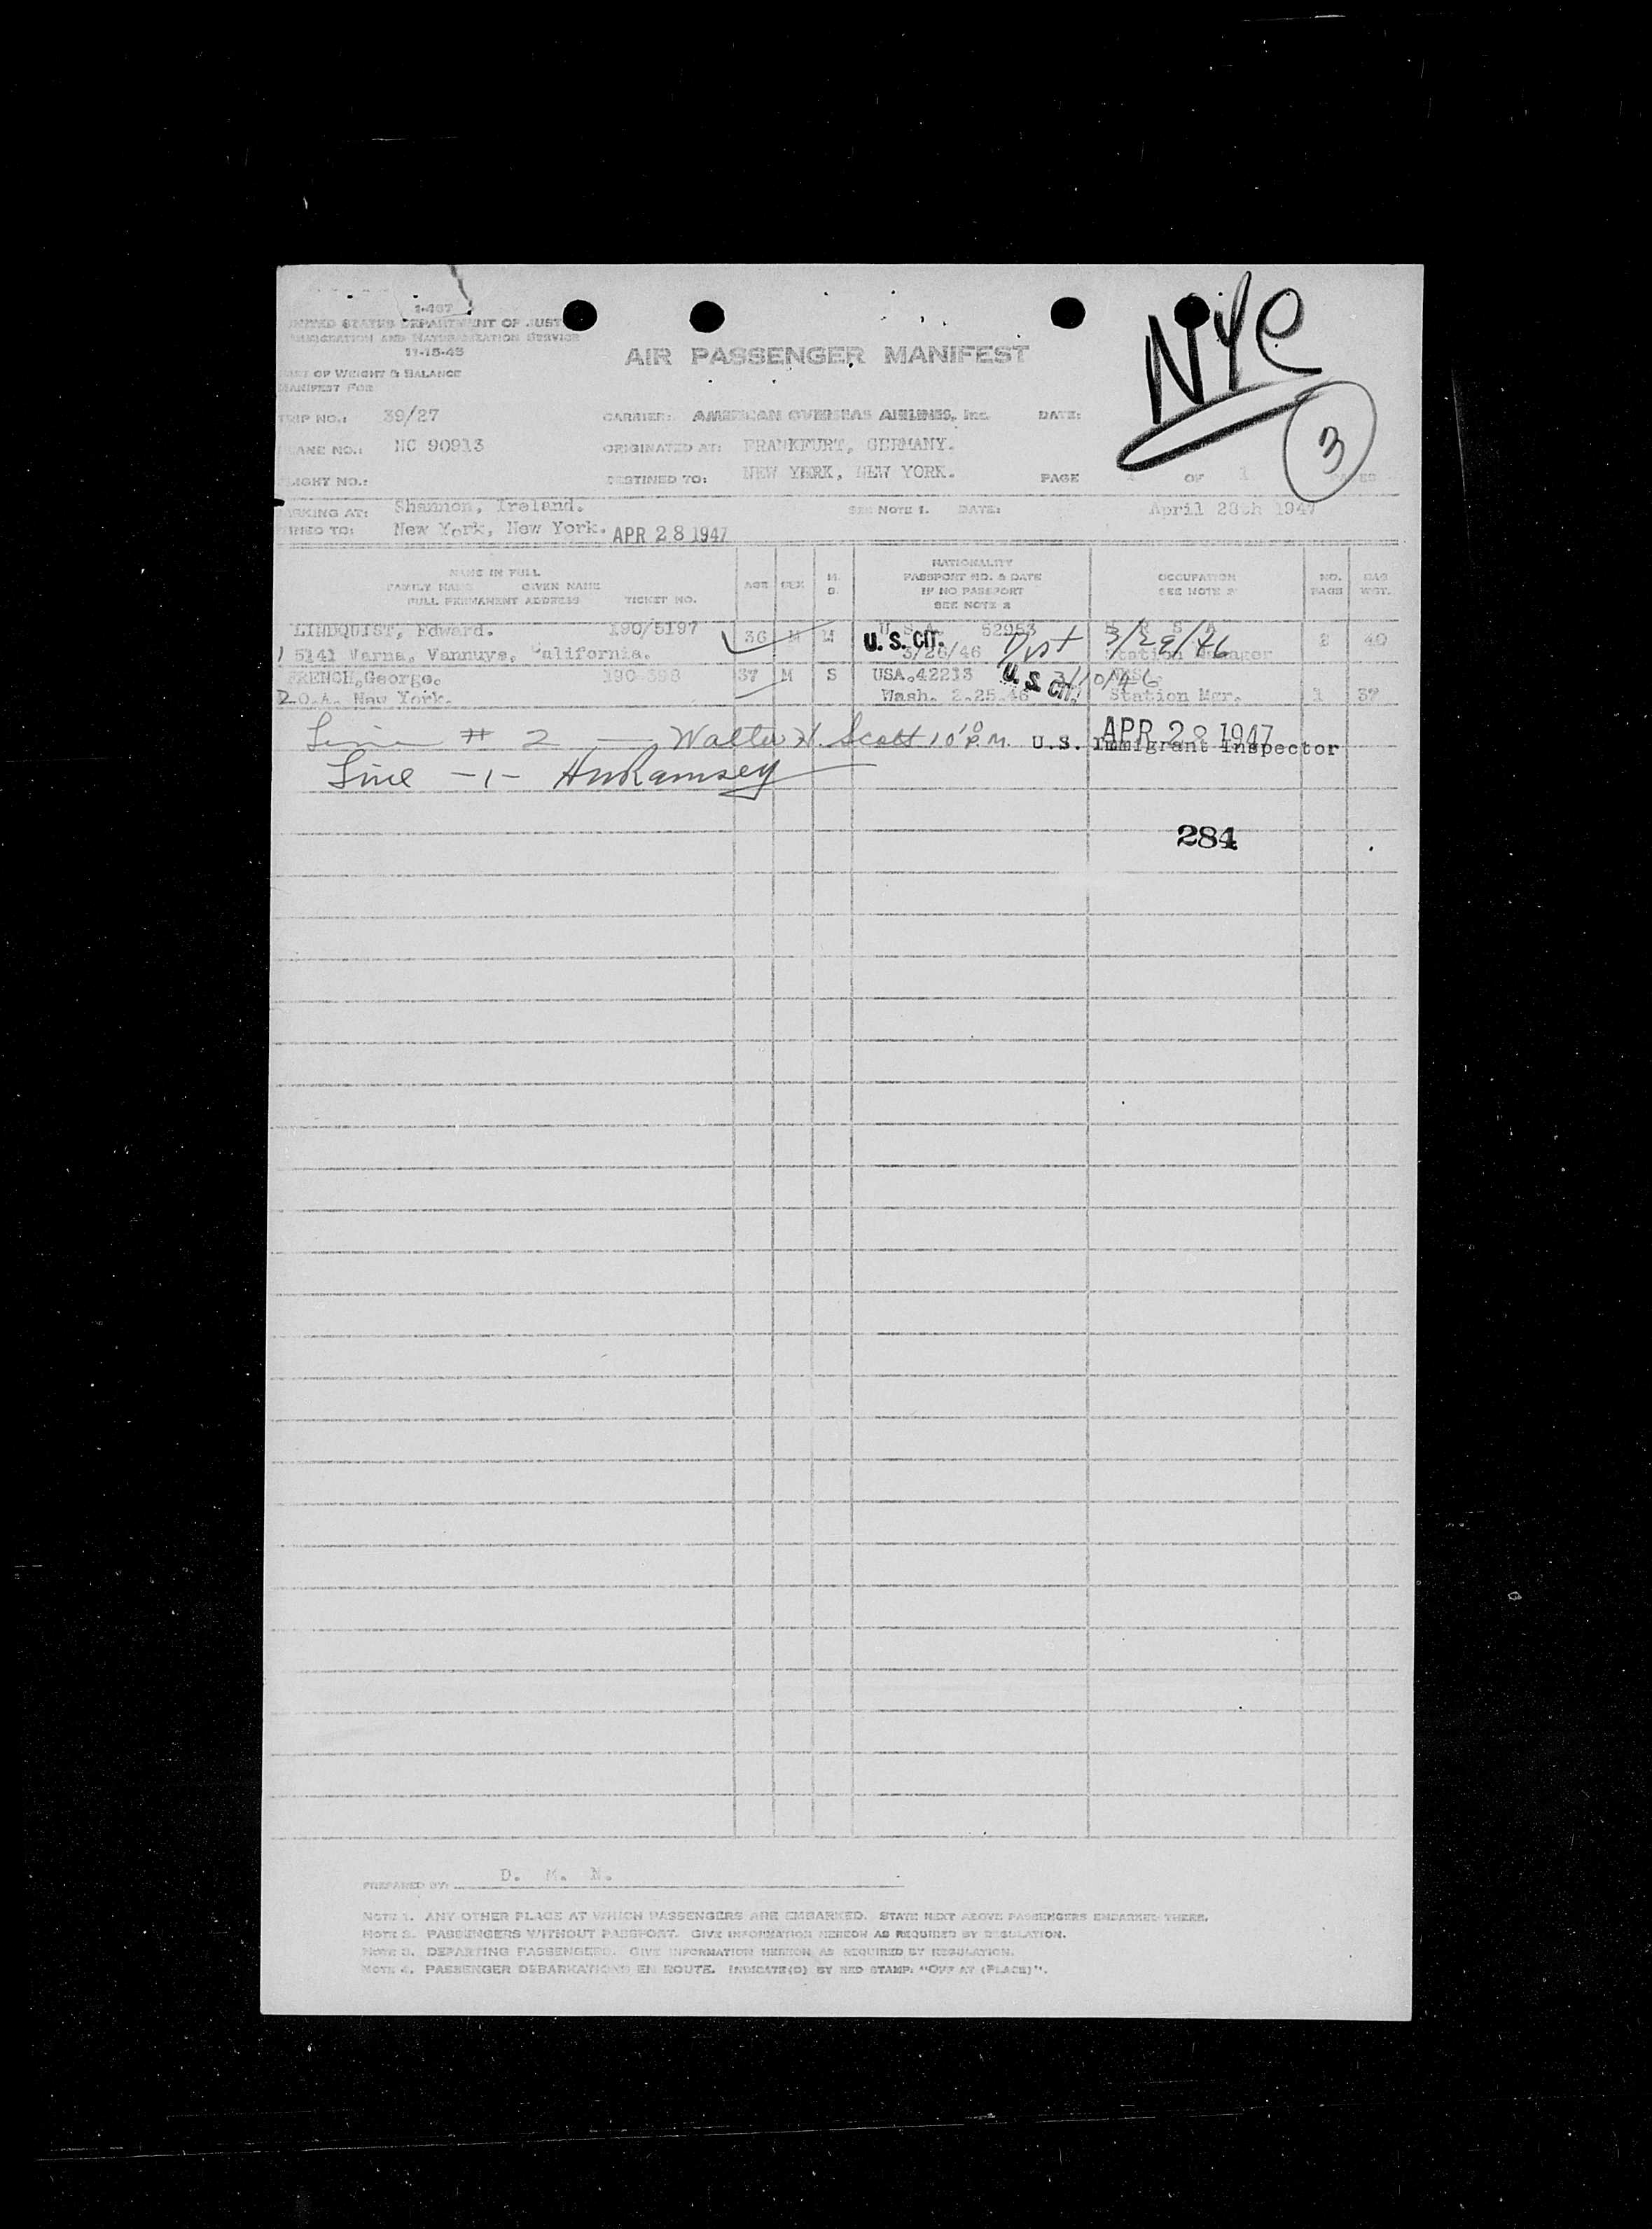 I-467
UNITED STATES DEPARTMENT OF JUST
IMMIGRATION AND NATURALIZATION SERVICE
11-15-45
AIR PASSENGER MANIFEST
NYC
3
OF WEIGHT & BALANCE
MANIFEST FOR
TRIP NO.: 39/27 CARRIER: AMERICAN OVERSEAS AIRLINES, Inc. DATE:
PLANE NO.: NC 90913 ORIGINATED AT: FRANKFURT, GERMANY.
FLIGHT NO.: DESTINED TO: NEW YORK, NEW YORK. PAGE 1 OF 1 PAGES
ARKING AT: Shannon, Ireland. SEE NOTE 1. DATE: April 28th 1947
TINED TO: New York, New York. APR 28 1947
NAME IN FULL
FAMILY NAME GIVEN NAME
FULL PERMANENT ADDRESS TICKET NO. AGE SEX M. S. NATIONALITY PASSPORT NO. & DATE IF NO PASSPORT SEE NOTE 2 OCCUPATION SEE NOTE 3 NO. BAGS BAG WGT.
LINDQUIST, Edward. 190/5197 36 M M U.S.A. 52953 2 40
1 5141 Varna, Vannuys, California. U.S. CIT. 3/26/46 3/29/46 Station Manager
FRENCH, George. 190-398 37 M S USA.42213 U.S. CIT. 3/10/46
2 O.A. New York. Wash. 2.25.46 Station Mgr. 1 37
Line # 2 — Walter H. Scott 10 P.M. U.S. Immigrant Inspector APR 28 1947
Line -1- HW Ramsey
284
PREPARED BY: D. M. N.
NOTE 1. ANY OTHER PLACE AT WHICH PASSENGERS ARE EMBARKED. STATE NEXT ABOVE PASSENGERS EMBARKED THERE.
NOTE 2. PASSENGERS WITHOUT PASSPORT. GIVE INFORMATION HEREON AS REQUIRED BY REGULATION.
NOTE 3. DEPARTING PASSENGERS. GIVE INFORMATION HEREON AS REQUIRED BY REGULATION.
NOTE 4. PASSENGER DEBARKATIONS EN ROUTE. INDICATE(D) BY RED STAMP: "OFF AT (PLACE)".